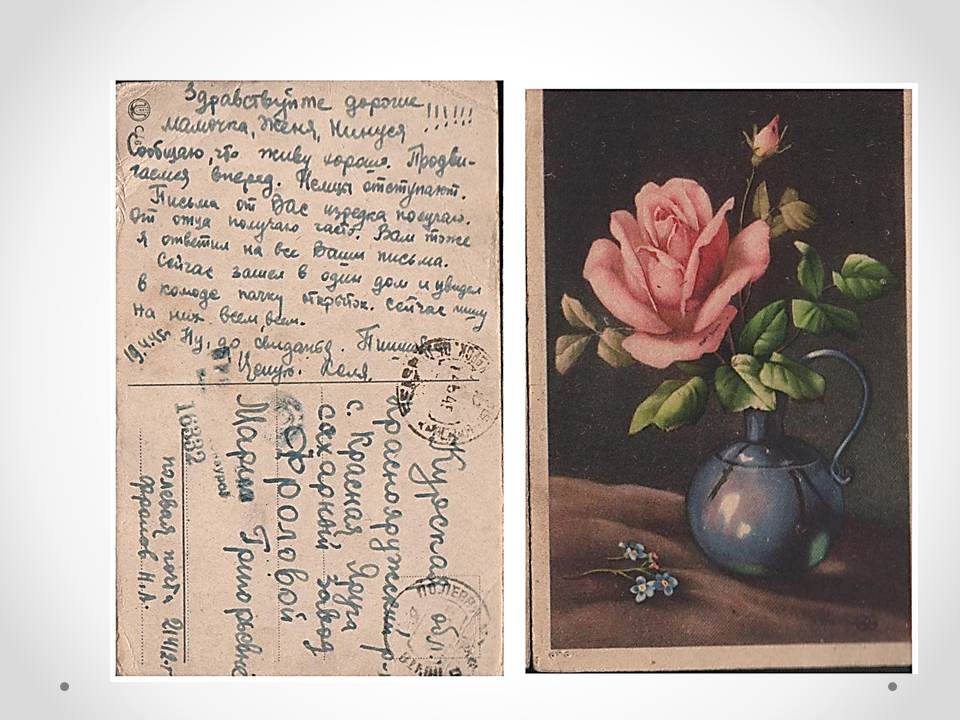 Здравствуйте дорогие
мамочка, Женя, Нинуся !!!!!!
Сообщаю, что живу хорошо. Продви-
гаемся вперед. Немцы отступают.
Письма от Вас изредка получаю.
От отца получаю часто. Вам тоже
Я ответил на все Ваши письма.
Сейчас зашел в один дом и увидел
в комоде пачку открыток. Сейчас пишу
на них всем, всем.
Ну, до свиданья. Пишите
Целую. Коля.
Курская обл.
Краснояружский р-
с. Красная Яруга
сахарный завод
Фроловой
Марии Григорьевне
16332
полевая почта
Фролов Н.
ПОЛЕВАЯ